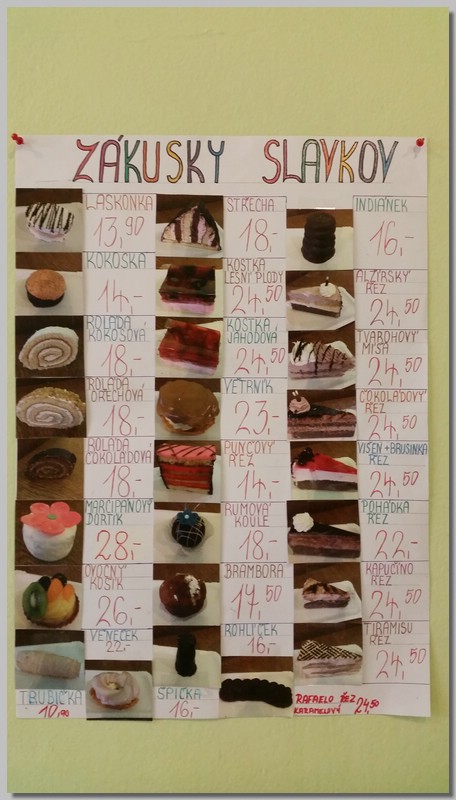 ZÁKUSKY SLAVKOV
LASKONKA
13,90
STŘECHA
18,-
INDIÁNEK
16,-
KOKOSKA
14,-
KOSTKA
LESNÍ PLODY
24,50
ALŽÍRSKÝ
ŘEZ
24,50
ROLÁDA
KOKOSOVÁ
18,-
KOSTKA
JAHODOVÁ
24,50
TVAROHOVÝ
MÍSA
24,50
ROLÁDA
OŘECHOVÁ
18,-
VĚTRNÍK
23,-
ČOKOLÁDOVÝ
ŘEZ
24,50
ROLÁDA
ČOKOLÁDOVÁ
18,-
PUNČOVÝ
ŘEZ
14,-
VIŠEŇ+BRUSINKA
ŘEZ
24,50
MARCIPÁNOVÝ
DORTÍK
28,-
RUMOVÁ
KOULE
18,-
POHÁDKA
ŘEZ
22,-
OVOCNÝ
KOŠÍK
26,-
BRAMBORA
17,50
KAPUČÍNO
ŘEZ
24,50
VĚNEČEK
22,-
ROHLÍČEK
16,-
TIRAMISU
ŘEZ
24,50
TRUBIČKA
10,90
ŠPIČKA
16,-
RAFAELO ŘEZ
KARAMELOVÝ 24,50